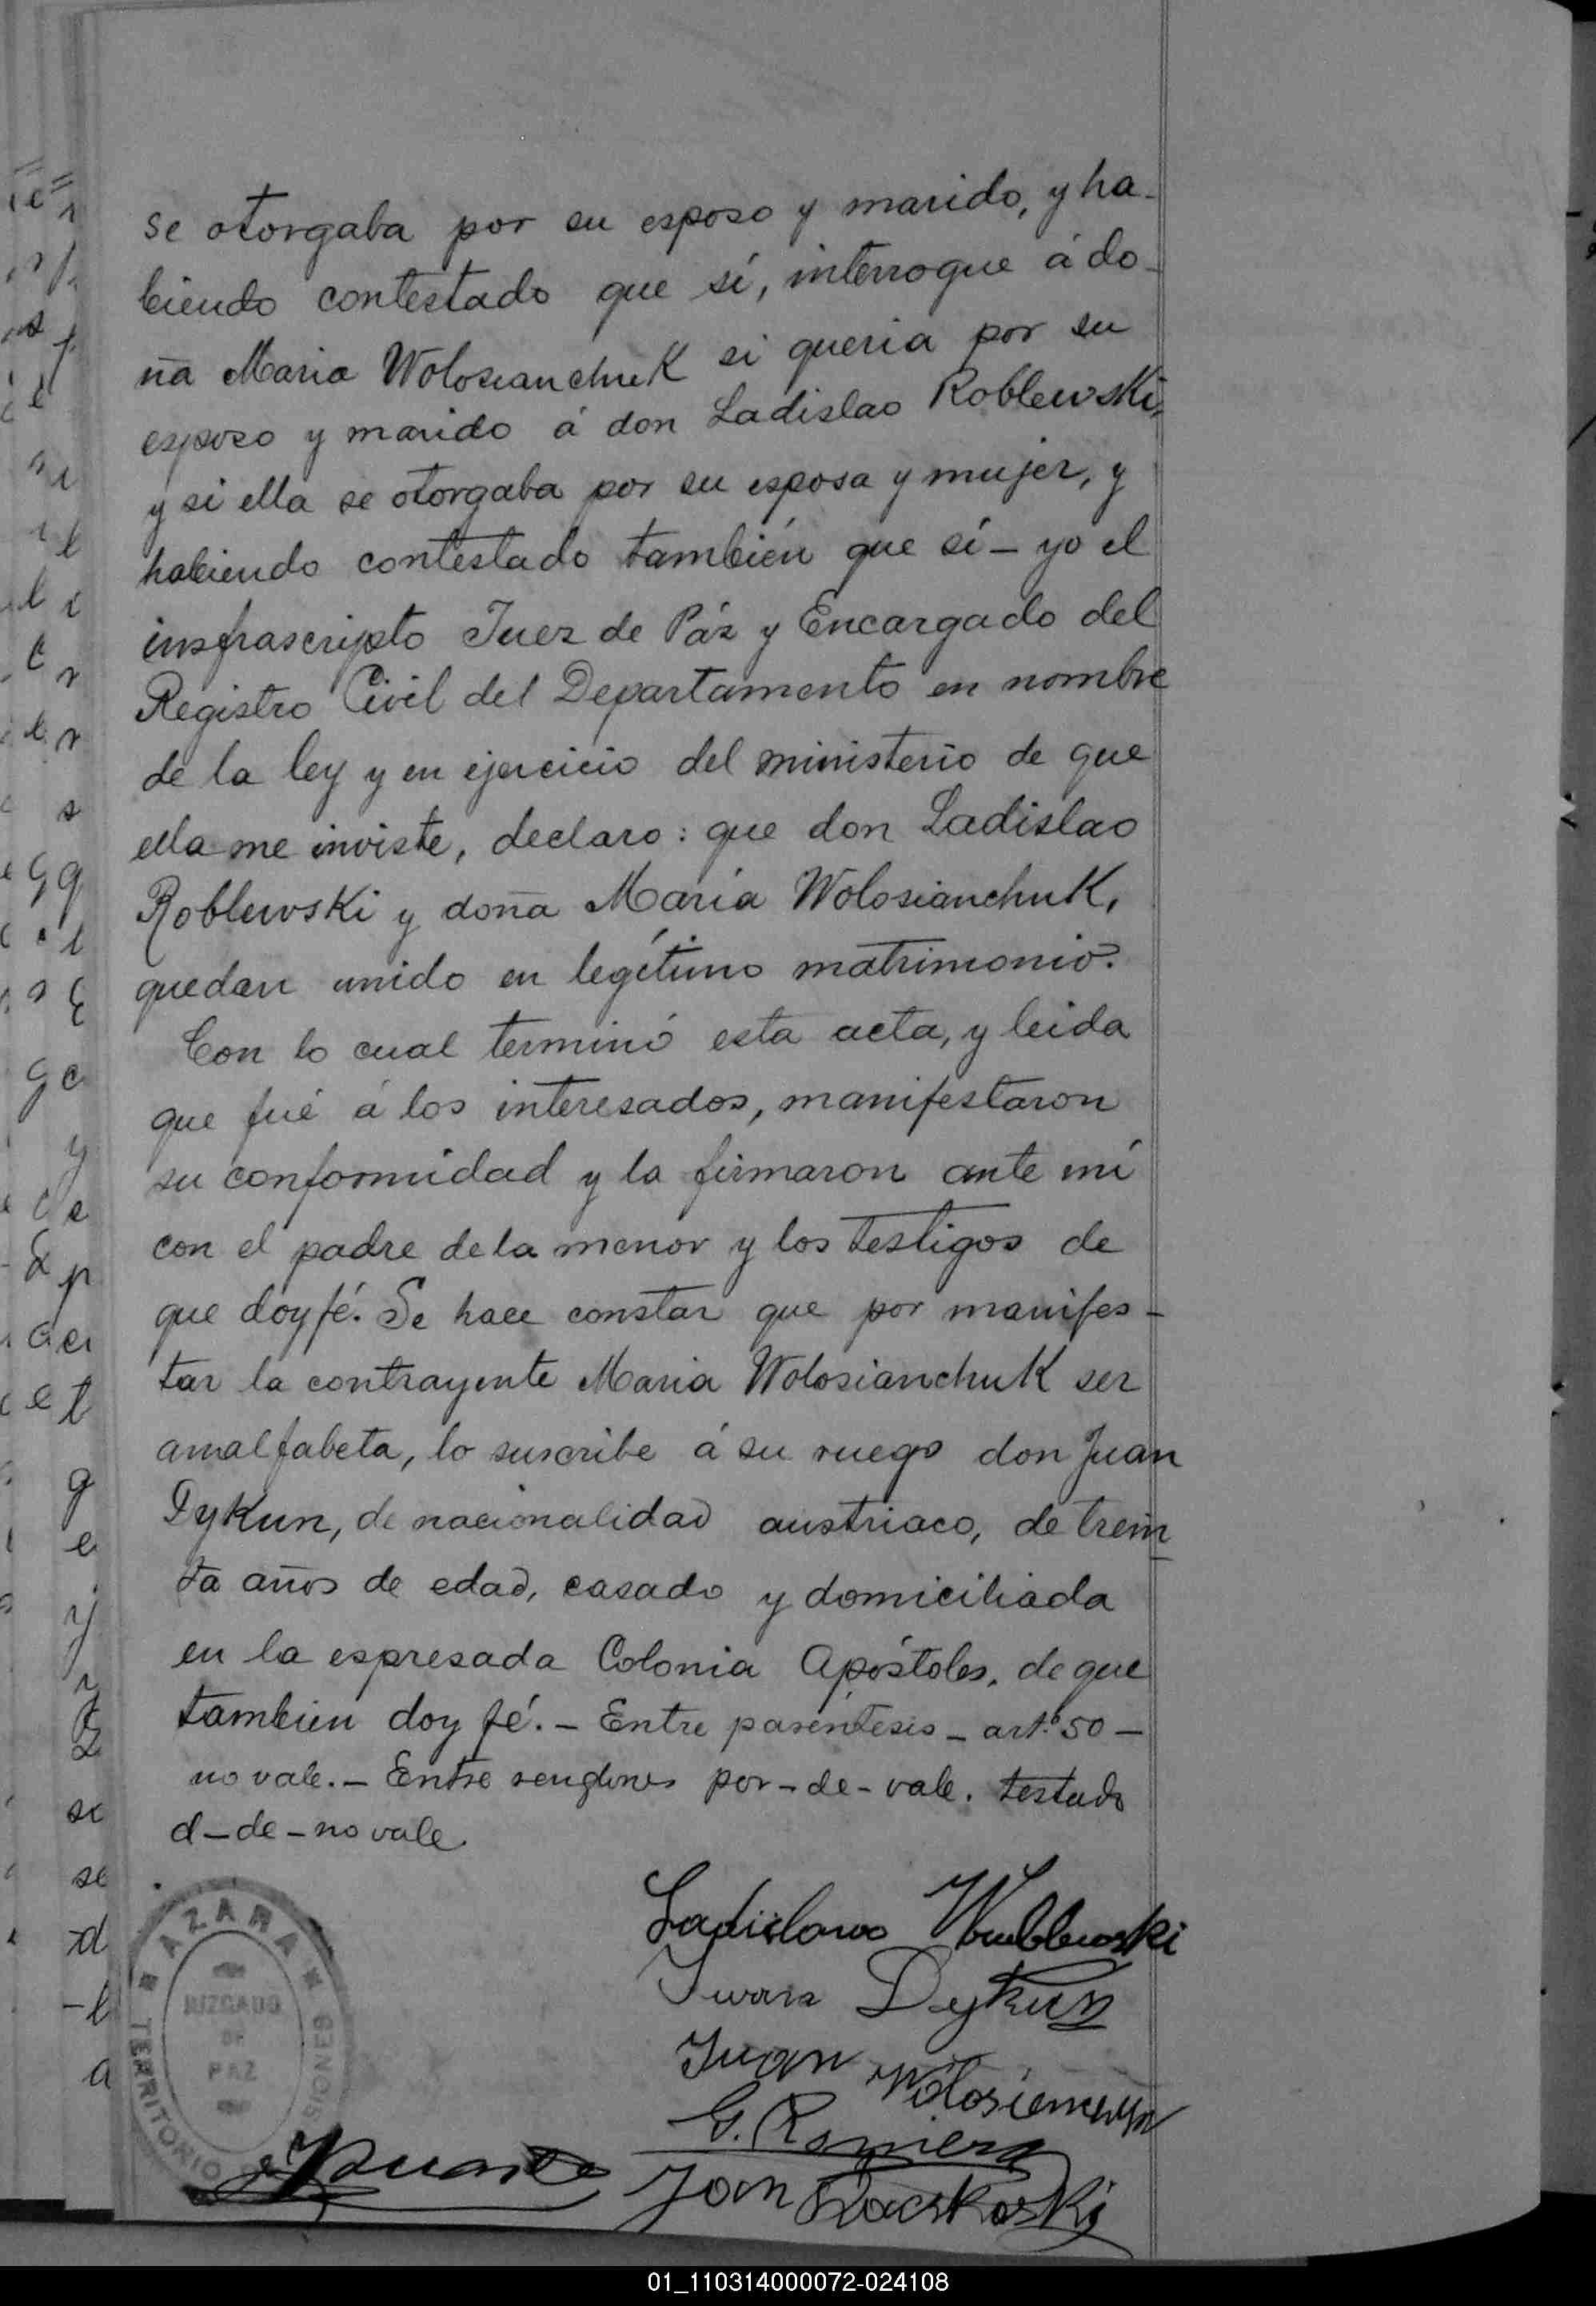 se otorgaba por su esposo y marido, y ha-
biendo contestado que sí, interrogue á do-
ña Maria Wolosianchuk si queria por su
esposo y marido á don Ladislao Roblewski,
y si ella se otorgaba por su esposa y mujer, y
habiendo contestado también que sí - yo el
insfrascripto Juez de Páz y Encargado del
Registro Civil del Departamento en nombre
de la ley y en ejercicio del ministerio de que
ella me inviste, declaro: que don Ladislao
Roblewski y doña Maria Wolosianchuk,
quedan unido en legítimo matrimonio.
Con lo cual terminó esta acta, y leida
que fué á los interesados, manifestaron
su conformidad y la firmaron ante mí
con el padre de la menor y los testigos de
que doy fé. Se hace constar que por manifes-
tar la contrayente Maria Wolosianchuk ser
analfabeta, lo suscribe á su ruego don Juan
Dykun, de nacionalidad austriaco, de trein
ta años de edad, casado y domiciliada
en la espresada Colonia Apóstoles, de que
tambien doy fé. - Entre paréntesis - art.º 50 -
no vale. - Entre renglones por - de - vale. testado
d - de - no vale.
Ladislaus Wrublewski
Iwan Dykun
Juan
G. Ramirez
Jan
AZARA
JUZGADO
DE
PAZ
TERRITORIO MISIONES
01_110314000072-024108